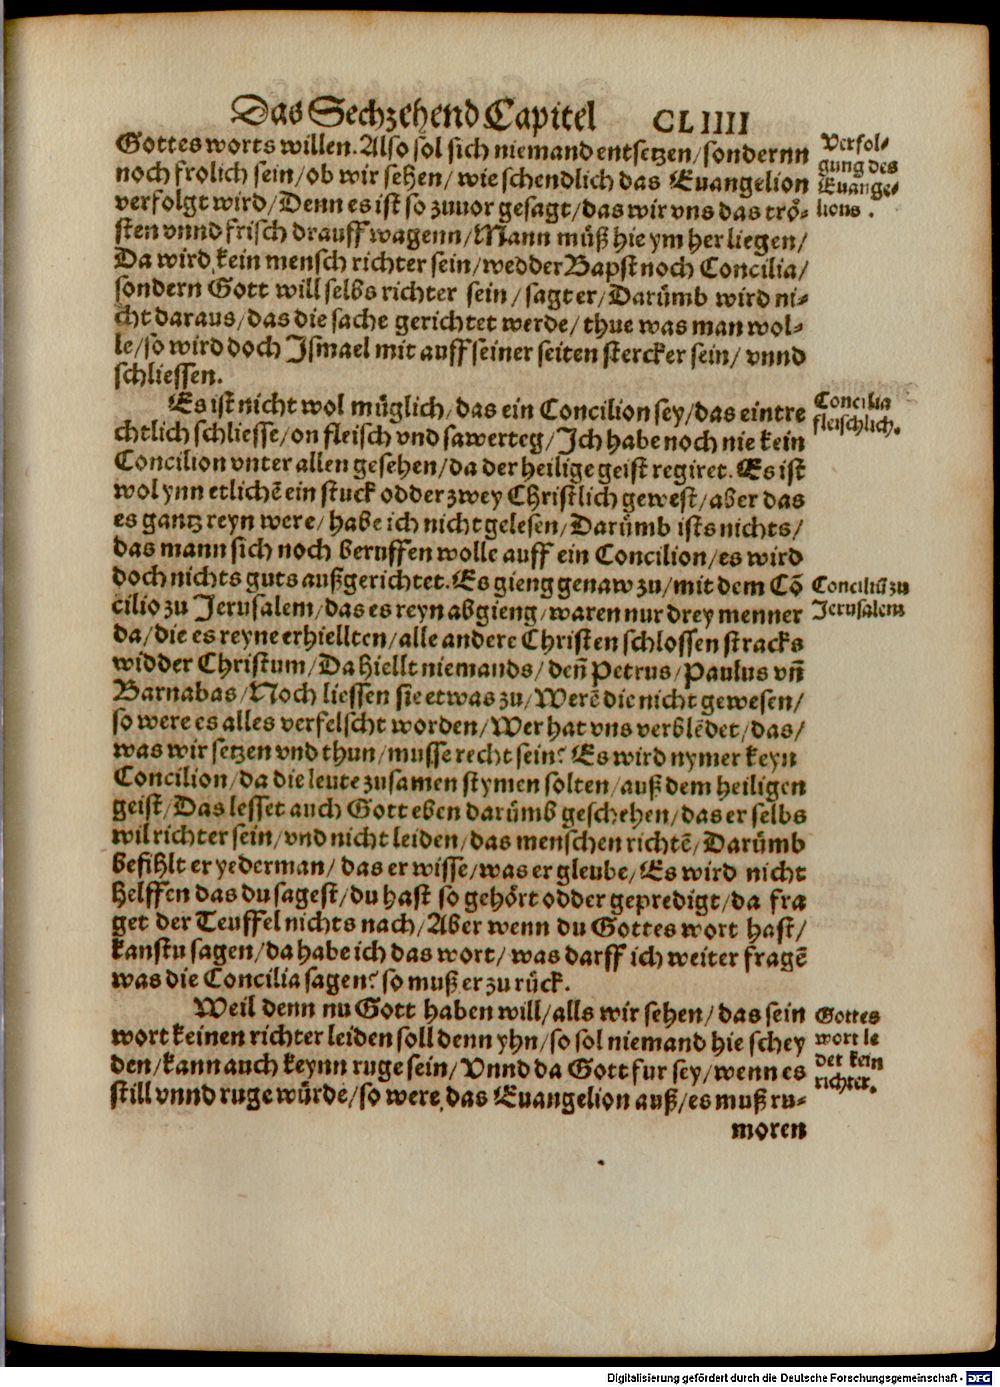 Das Sechzehend Capitel CLIIII
Gottes worts willen. Also sol sich niemand entsetzen/sondernn
noch frolich sein/ob wir sehen/ wie schendlich das Euangelion
verfolgt wird/Denn es ist so zuuor gesagt/das wir vns das trö⸗
sten vnnd frisch drauff wagenn/Mann müß hie ym her liegen/
Da wird kein mensch richter sein/wedder Bapst noch Concilia/
sondern Gott will selbs richter sein/sagt er/Darümb wird ni⸗
cht daraus/das die sache gerichtet werde/thue was man wol⸗
le/so wird doch Ismael mit auff seiner seiten stercker sein/ vnnd
schliessen.
Verfol⸗
gung des
Euange⸗
lions.
Es ist nicht wol müglich/das ein Concilion sey/das eintre
chtlich schliesse/on fleisch vnd sawerteg/Ich habe noch nie kein
Concilion vnter allen gesehen/da der heilige geist regiret. Es ist
wol ynn etlichē ein stuck odder zwey Christlich gewest/aber das
es gantz reyn were/habe ich nicht gelesen/Darümb ists nichts/
das mann sich noch beruffen wolle auff ein Concilion/es wird
doch nichts guts außgerichtet. Es gieng genaw zu/mit dem Cō
cilio zu Jerusalem/das es reyn abgieng/waren nur drey menner
da/die es reyne erhiellten/alle andere Christen schlossen stracks
widder Christum/Da hiellt niemands/den̄ Petrus/Paulus vn̄
Barnabas/Noch liessen sie etwas zu/Werē die nicht gewesen/
so were es alles verfelscht worden/Wer hat vns verblēdet/das/
was wir setzen vnd thun/musse recht sein? Es wird nymer keyn
Concilion/da die leute zusamen stymen solten/auß dem heiligen
geist/Das lesset auch Gott eben darümb geschehen/das er selbs
wil richter sein/vnd nicht leiden/das menschen richtē/Darümb
befihlt er yederman/das er wisse/was er gleube/Es wird nicht
helffen das du sagest/du hast so gehört odder gepredigt/da fra
get der Teuffel nichts nach/Aber wenn du Gottes wort hast/
kanstu sagen/da habe ich das wort/was darff ich weiter fragē
was die Concilia sagen? so muß er zu rück.
Concilia
fleischlich.
Conciliū zu
Jerusalem
Weil denn nu Gott haben will/alls wir sehen/das sein
wort keinen richter leiden soll denn yhn/so sol niemand hie schey
den/kann auch keynn ruge sein/Vnnd da Gott fur sey/wenn es
still vnnd ruge würde/so were das Euangelion auß/es muß ru⸗
moren
Gottes
wort le
det kein
richter.
Digitalisierung gefördert durch die Deutsche Forschungsgemeinschaft - DFG